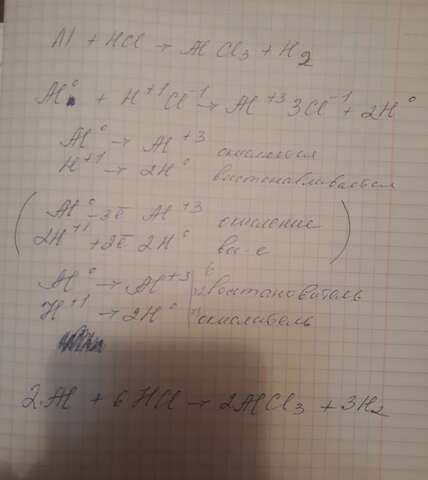 Al + HCl → AlCl₃ + H₂
Al⁰ + H⁺¹Cl⁻¹ → Al⁺³3Cl⁻¹ + 2H⁰
Al⁰ → Al⁺³ окисляется
H⁺¹ → 2H⁰ востонавливается
Al⁰ -3ē Al⁺³ окисление
2H⁺¹ +2ē 2H⁰ вос-е
Al⁰ → Al⁺³ | 6 | востановитель
H⁺¹ → 2H⁰ | окислитель
2Al + 6HCl → 2AlCl₃ + 3H₂